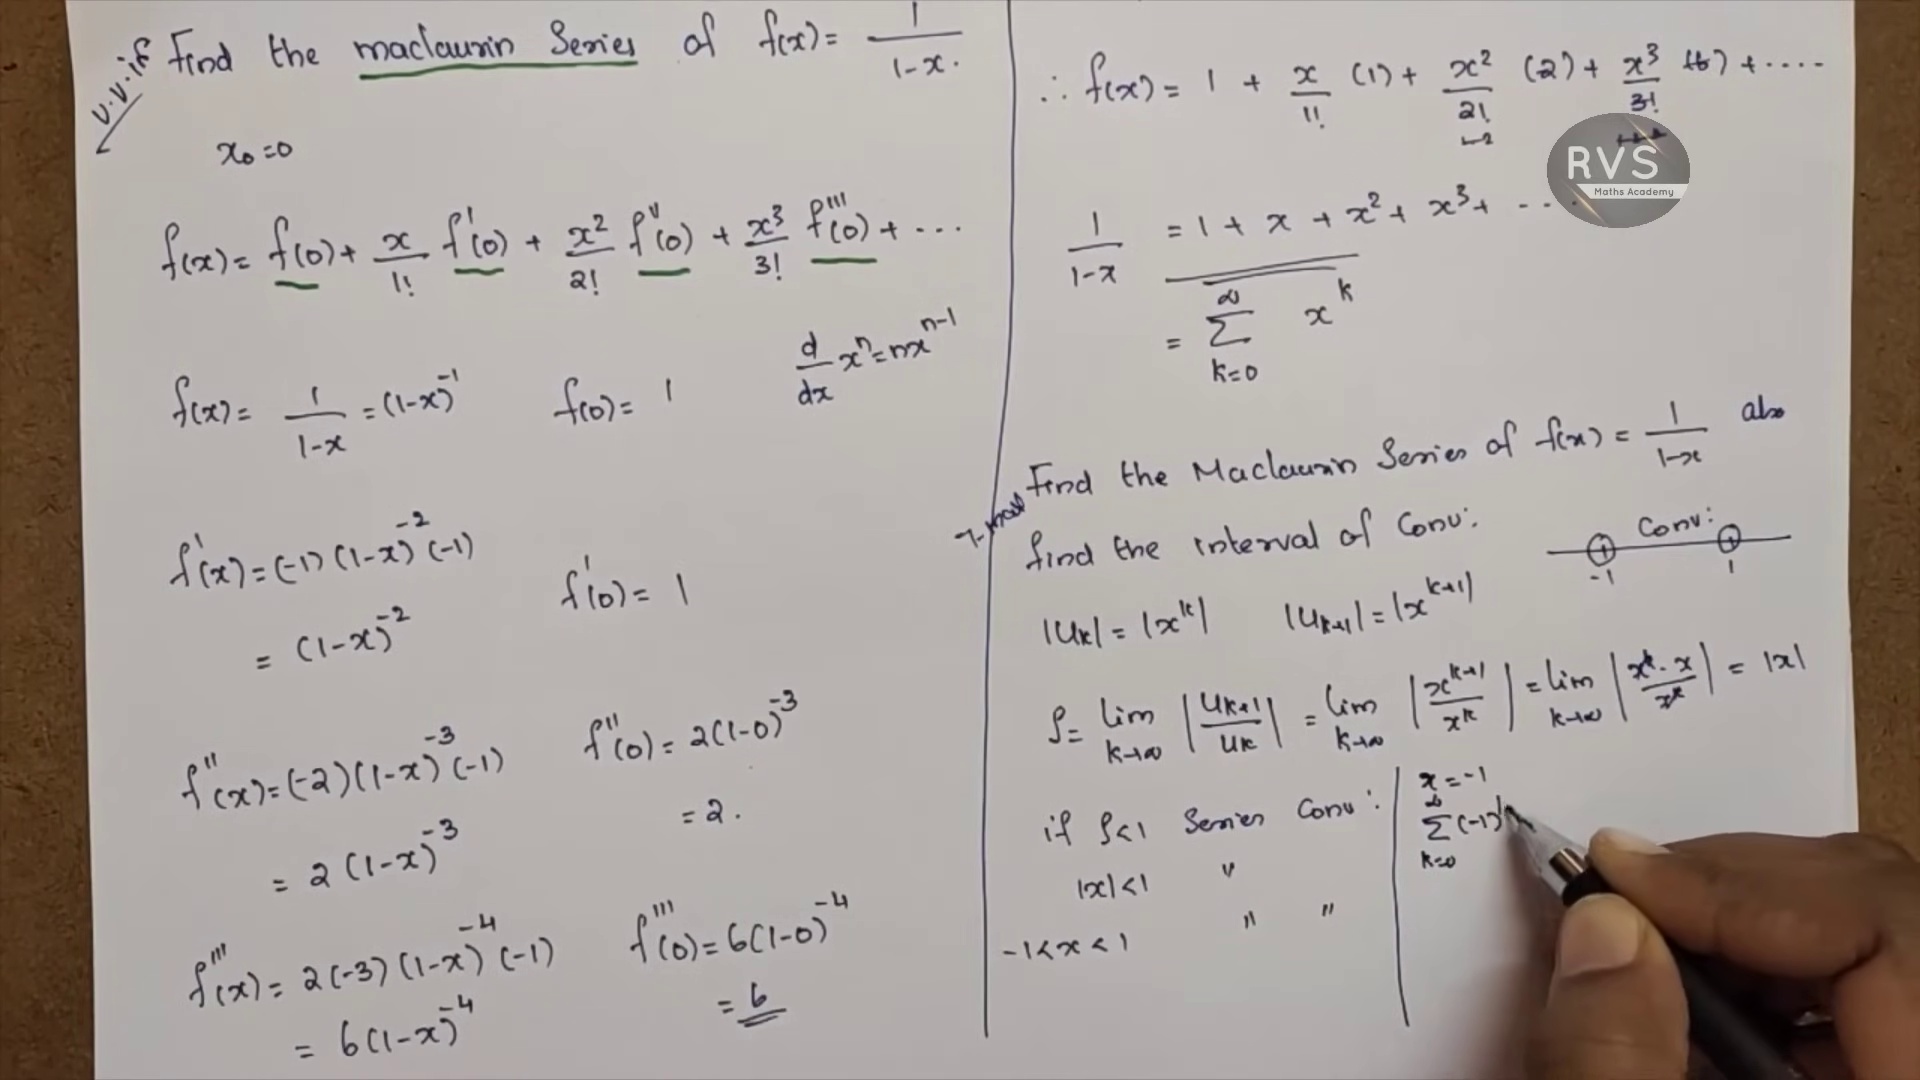 v.v.if Find the maclaurin Series of f(x) = 1/(1-x).
x₀ = 0
f(x) = f(0) + x/1! f'(0) + x²/2! f''(0) + x³/3! f'''(0) + ...
d/dx xⁿ = nxⁿ⁻¹
f(x) = 1/(1-x) = (1-x)⁻¹ f(0) = 1
f'(x) = (-1)(1-x)⁻²(-1) f'(0) = 1
= (1-x)⁻²
f''(x) = (-2)(1-x)⁻³(-1) f''(0) = 2(1-0)⁻³
= 2(1-x)⁻³ = 2.
f'''(x) = 2(-3)(1-x)⁻⁴(-1) f'''(0) = 6(1-0)⁻⁴
= 6(1-x)⁻⁴ = 6
∴ f(x) = 1 + x/1! (1) + x²/2! (2) + x³/3! (6) + ....
RVS
Maths Academy
1/(1-x) = 1 + x + x² + x³ + ....
= ∑ k=0 ∞ xᵏ
Find the Maclaurin Series of f(x) = 1/(1-x) also
find the interval of Conv:
Conv:
-1 1
|uₖ| = |xᵏ| |uₖ₊₁| = |xᵏ⁺¹|
ρ = lim k→∞ |uₖ₊₁/uₖ| = lim k→∞ |xᵏ⁺¹/xᵏ| = lim k→∞ |xᵏ·x/xᵏ| = |x|
if ρ<1 Series Conv:
|x|<1 "
-1<x<1 " "
x = -1
∑ k=0 ∞ (-1)